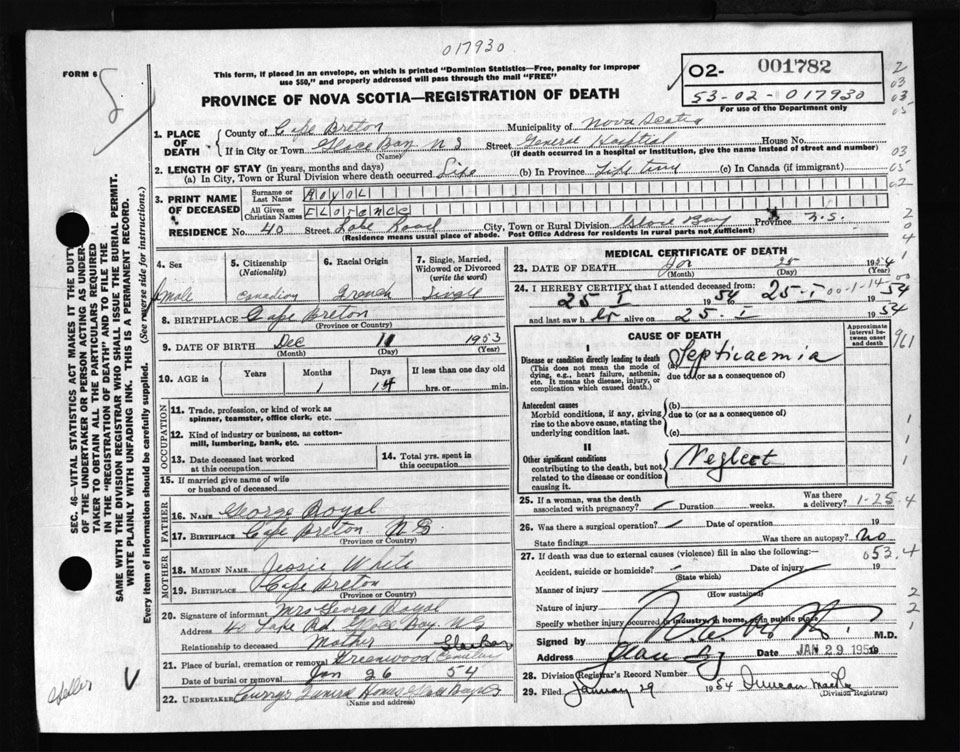 017930
FORM 6
This form, if placed in an envelope, on which is printed "Dominion Statistics—Free, penalty for improper use $50," and properly addressed will pass through the mail "FREE"
02- 001782
53-02-017930
For use of the Department only
PROVINCE OF NOVA SCOTIA—REGISTRATION OF DEATH
1. PLACE OF DEATH
County of Cape Breton Municipality of Nova Scotia
If in City or Town Glace Bay N S Street General Hospital House No.
(Name) (If death occurred in a hospital or institution, give the name instead of street and number)
2. LENGTH OF STAY (in years, months and days)
(a) In City, Town or Rural Division where death occurred Life (b) In Province Life time (c) In Canada (if immigrant)
3. PRINT NAME OF DECEASED
Surname or Last Name ROYAL
All Given or Christian Names FLORENCE
RESIDENCE No. 40 Street Lake Road City, Town or Rural Division Glace Bay Province N.S.
(Residence means usual place of abode. Post Office Address for residents in rural parts not sufficient)
4. Sex Female
5. Citizenship (Nationality) Canadian
6. Racial Origin French
7. Single, Married, Widowed or Divorced (write the word) Single
8. BIRTHPLACE Cape Breton
(Province or Country)
9. DATE OF BIRTH Dec 11 1953
(Month) (Day) (Year)
10. AGE in Years Months 1 Days 14 If less than one day old hrs. or min.
OCCUPATION
11. Trade, profession, or kind of work as spinner, teamster, office clerk, etc.
12. Kind of industry or business, as cotton-mill, lumbering, bank, etc.
13. Date deceased last worked at this occupation
14. Total yrs. spent in this occupation
15. If married give name of wife or husband of deceased
FATHER
16. NAME George Royal
17. BIRTHPLACE Cape Breton N S
(Province or Country)
MOTHER
18. MAIDEN NAME Jessie White
19. BIRTHPLACE Cape Breton
(Province or Country)
20. Signature of informant Mrs George Royal
Address 40 Lake Rd Glace Bay NS
Relationship to deceased Mother
21. Place of burial, cremation or removal Greenwood Glace Bay
Date of burial or removal Jan 26 54
22. UNDERTAKER
(Name and address)
MEDICAL CERTIFICATE OF DEATH
23. DATE OF DEATH Jan 25 1954
(Month) (Day) (Year)
24. I HEREBY CERTIFY that I attended deceased from:
25 I 1954 25-I 00-1-14 54
and last saw h er alive on 25-I 1954
CAUSE OF DEATH
Approximate interval between onset and death
I
Disease or condition directly leading to death
(This does not mean the mode of dying, e.g., heart failure, asthenia, etc. It means the disease, injury, or complication which caused death.)
(a) Septicaemia
due to (or as a consequence of)
Antecedent causes
Morbid conditions, if any, giving rise to the above cause, stating the underlying condition last.
(b)
due to (or as a consequence of)
(c)
II
Other significant conditions contributing to the death, but not related to the disease or condition causing it.
Neglect
25. If a woman, was the death associated with pregnancy? Duration weeks. Was there a delivery? 1-25-4
26. Was there a surgical operation? Date of operation 19
State findings Was there an autopsy? No
27. If death was due to external causes (violence) fill in also the following:— 053.4
Accident, suicide or homicide? Date of injury 19
(State which)
Manner of injury
(How sustained)
Nature of injury
Specify whether injury occurred in industry, in home, or in public place
Signed by M.D.
Address Date JAN 29 195
28. Division Registrar's Record Number
29. Filed January 29 1954 Duncan
(Division Registrar)
SEC. 46—VITAL STATISTICS ACT MAKES IT THE DUTY OF THE UNDERTAKER OR PERSON ACTING AS UNDERTAKER TO OBTAIN ALL THE PARTICULARS REQUIRED IN THE "REGISTRATION OF DEATH" AND TO FILE THE SAME WITH THE DIVISION REGISTRAR WHO SHALL ISSUE THE BURIAL PERMIT.
WRITE PLAINLY WITH UNFADING INK. THIS IS A PERMANENT RECORD.
Every item of information should be carefully supplied. (See reverse side for instructions.)